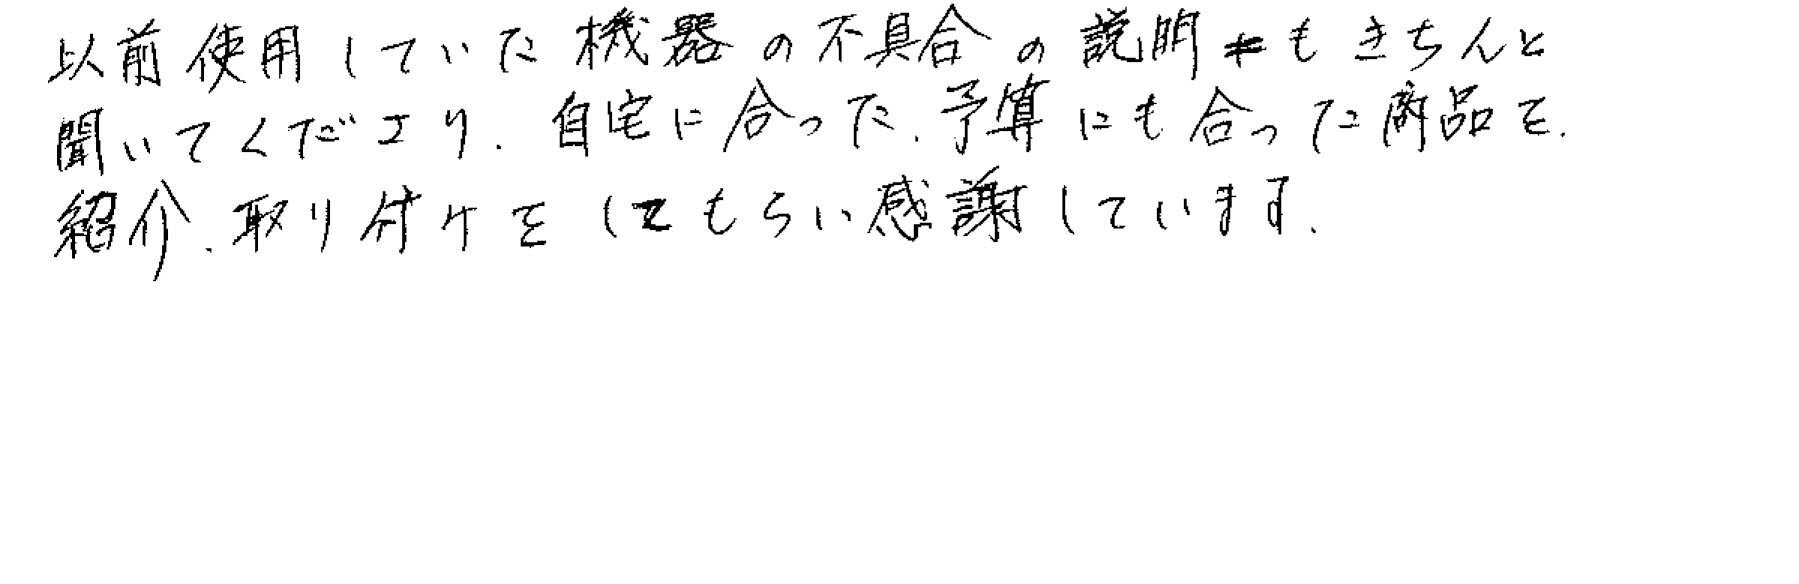 以前使用していた機器の不具合の説明もきちんと
聞いてくださり、自宅に合った、予算にも合った商品を、
紹介、取り付けをしてもらい感謝しています。